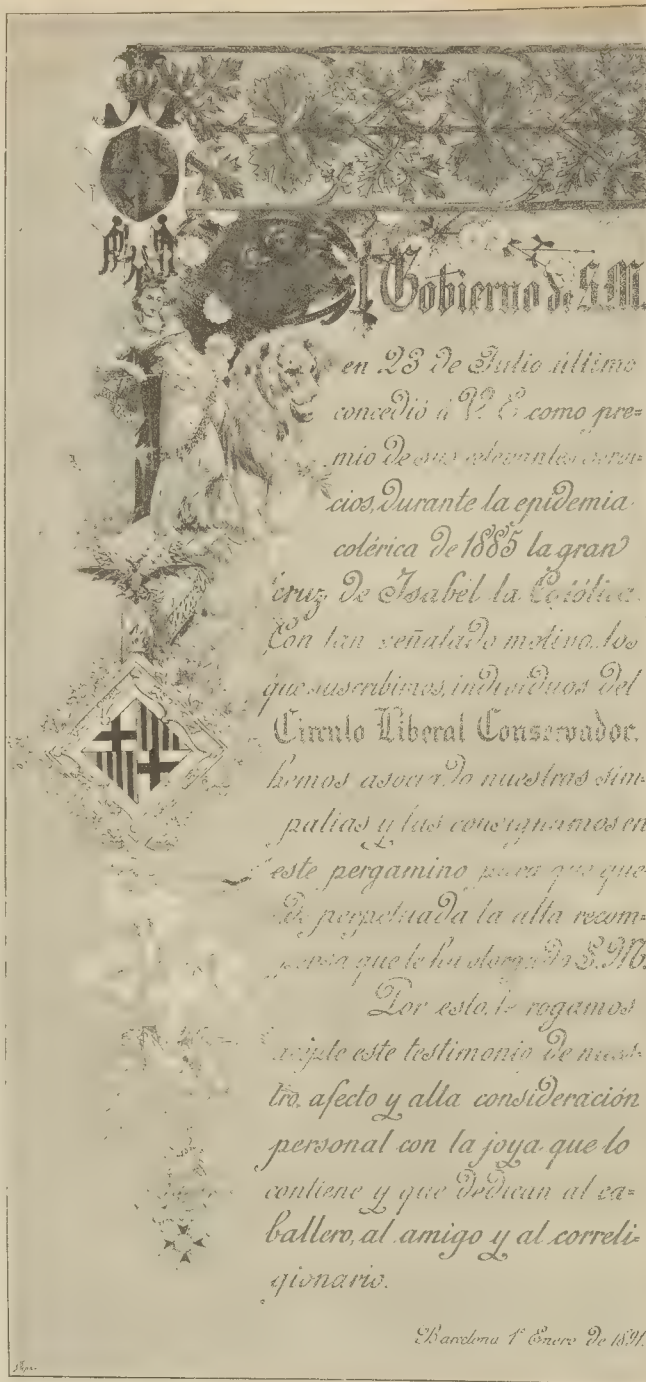 El Gobierno de S.M.
en 23 de Julio último
concedió á V. E. como pre=
mio de sus relevantes servi-
cios, durante la epidemia
colérica de 1885 la gran
cruz de Isabel la Católica.
Con tan señalado motivo, los
que suscribimos, individuos del
Circulo Liberal Conservador,
hemos asociado nuestras sim-
patias y las consignamos en
este pergamino para que que-
de perpetuada la alta recom-
pensa que le ha otorgado S.M.
Por esto, le rogamos
acepte este testimonio de nues-
tro afecto y alta consideración
personal con la joya que lo
contiene y que dedican al ca=
ballero, al amigo y al correli-
gionario.
Barcelona 1º Enero De 1891.